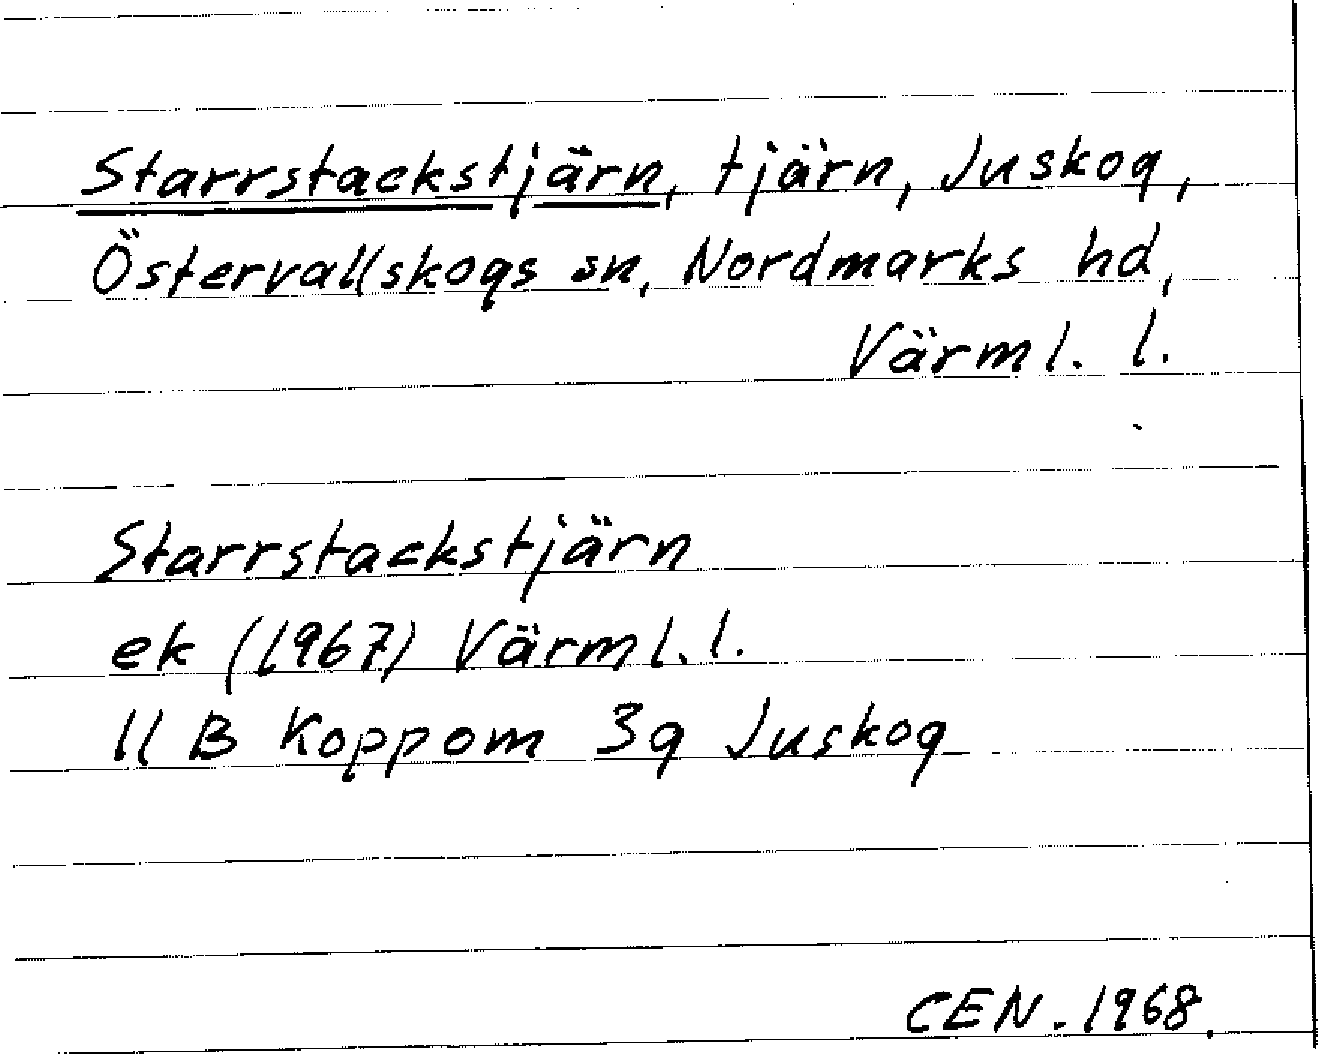 Starrstackstjärn, tjärn, Juskog,
Östervallskogs sn, Nordmarks hd,
Värml. l.
Starrstackstjärn
ek (1967) Värml. l.
11 B Koppom 3g Juskog
CEN. 1968.